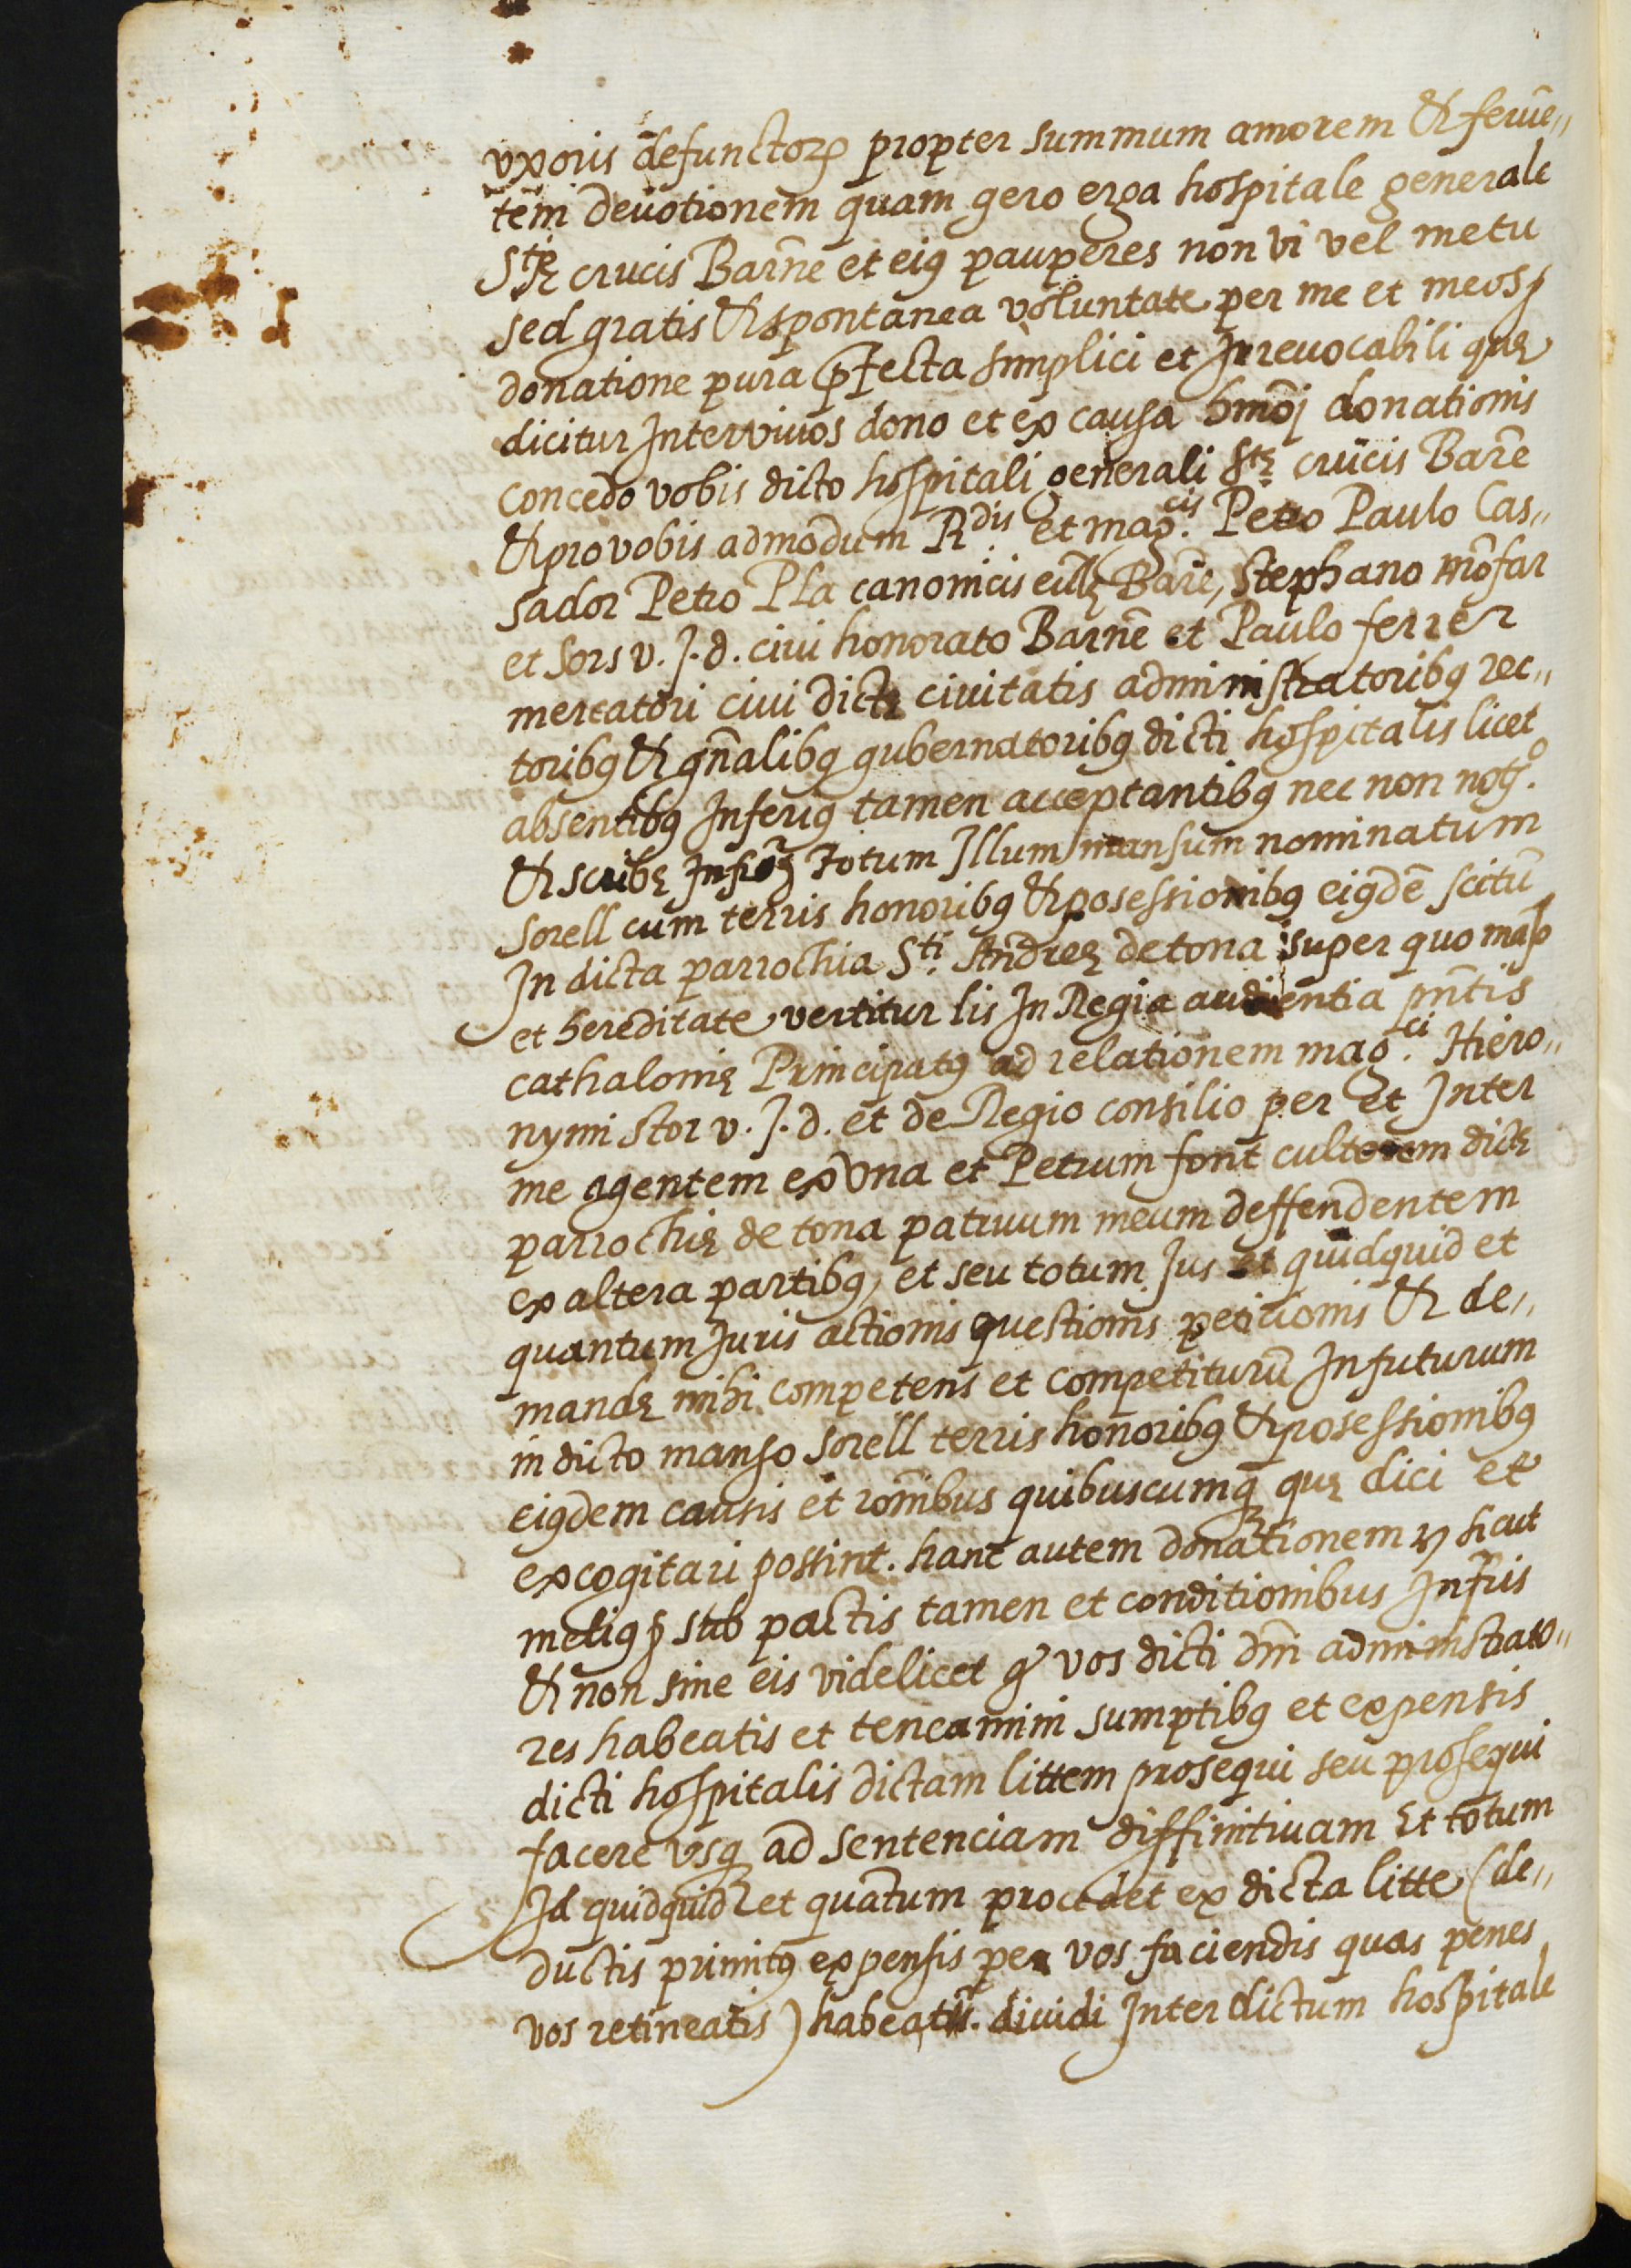 vxoris defunctorꝝ propter summum amorem & ferue„
tem deuotionem quam gero erga hospitale generale
Stę crucis Barn̄e et eiꝰ pauperes non vi vel metu
sed gratis & spontanea voluntate per me et meos ꝭ
donatione pura ꝑfecta simplici et Irreuocabili quę
dicitur Inter viuos dono et ex causa hmōj donationis
concedo vobis dicto hospitali generali Stę crucis Barn̄e
& pro vobis admodum R.dis et mag.cis Petro Paulo Cas„
sador Petro Pla canonicis eccl̄ę Barn̄e, Stephano mōfar
et Sors v. J. d. ciui honorato Barn̄e et Paulo ferrer
mercatori ciui dictę ciuitatis administratoribꝰ rec„
toribꝰ & gn̄alibꝰ gubernatoribꝰ dicti hospitalis licet
absentibꝰ Inferiꝰ tamen acceptantibꝰ nec non not.o
& scribę Infrō Totum Illum mansum nominatum
Sorell cum terris honoribꝰ & posessionibꝰ eiꝰdē scitū
In dicta parrochia S.ti Andreę de tona super quo manso
et hereditate vertitur lis In Regia audientia pn̄tis
cathalonię Principatꝰ ad relationem mag.ci Hiero„
nymi Stor v. J. d. et de Regio consilio per et Inter
me agentem ex vna et Petrum font cultorem dictę
parrochię de tona patruum meum deffendentem
ex altera partibꝰ, et seu totum Jus et quidquid et
quantum Juris actionis questionis peticionis & de„
mandę mihi competens et competiturū In futurum
in dicto manso Sorell terris honoribꝰ & posessionibꝰ
eiꝰdem causis et rōnibus quibuscumqꝫ quę dici et
excogitari possint. hanc autem donationem ꝛ sicut
meliꝰ ꝭ sub pactis tamen et conditionibus Infr̄is
& non sine eis videlicet ꝙ vos dicti dn̄i administrato„
res habeatis et teneamini sumptibꝰ et expensis
dicti hospitalis dictam littem prosequi seu prosequi
facere vsqꝫ ad sentenciam diffinitiuam Et totum
Id quidquid et quantum procedet ex dicta litte (de„
ductis primitꝰ expensis per vos faciendis quas penes
vos retineatis) habeatis diuidi Inter dictum hospitale